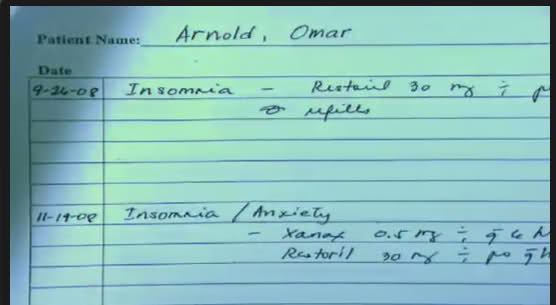 Patient Name: Arnold, Omar
Date
9-26-08 Insomnia - Restoril 30 mg
refills
11-19-08 Insomnia / Anxiety
- Xanax 0.5 mg
Restoril 30 mg po